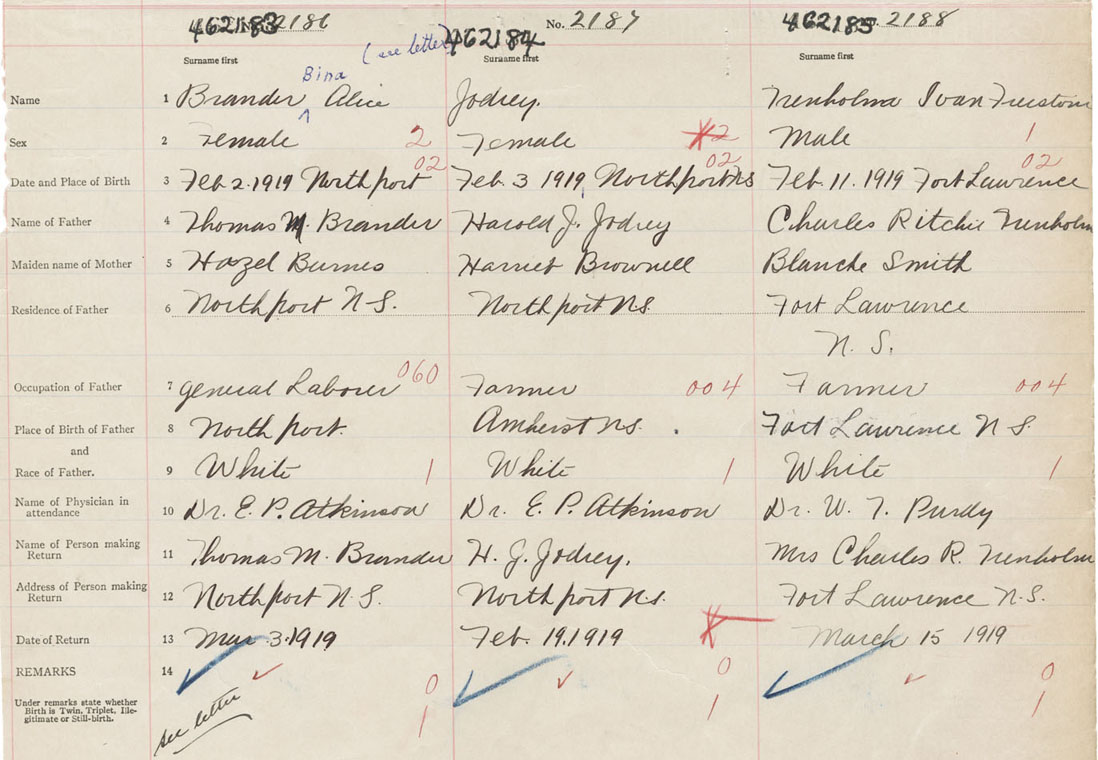 462183 2186 No. 2187 462185 2188
(see letter) 462184
Surname first Surname first Surname first
Bina
Name 1 Brander ^ Alice Jodrey. Trenholm Ivan
Sex 2 Female 2 Female 2 Male 1
02 02 02
Date and Place of Birth 3 Feb 2. 1919 Northport Feb. 3 1919, Northport NS Feb. 11. 1919 Fort Lawrence
Name of Father 4 Thomas M. Brander Harold J. Jodrey Charles Ritchie Trenholm
Maiden name of Mother 5 Hazel Burnes Harriet Brownell Blanche Smith
Residence of Father 6 Northport N-S. Northport NS. Fort Lawrence
N. S.
Occupation of Father 7 General Laborer 060 Farmer 004 Farmer 004
Place of Birth of Father 8 North port. Amherst NS. Fort Lawrence N S.
and
Race of Father. 9 White 1 White 1 White 1
Name of Physician in attendance 10 Dr. E. P. Atkinson Dr. E. P. Atkinson Dr. W. T. Purdy
Name of Person making Return 11 Thomas M. Brander H. J. Jodrey. Mrs Charles R. Trenholm
Address of Person making Return 12 Northport N.S. Northport N.S. Fort Lawrence N.S.
Date of Return 13 Mar. 3. 1919 Feb. 19. 1919 March 15 1919
REMARKS 14 0 0 0
Under remarks state whether Birth is Twin, Triplet, Ille-
gitimate or Still-birth. 1 1 1
see letter